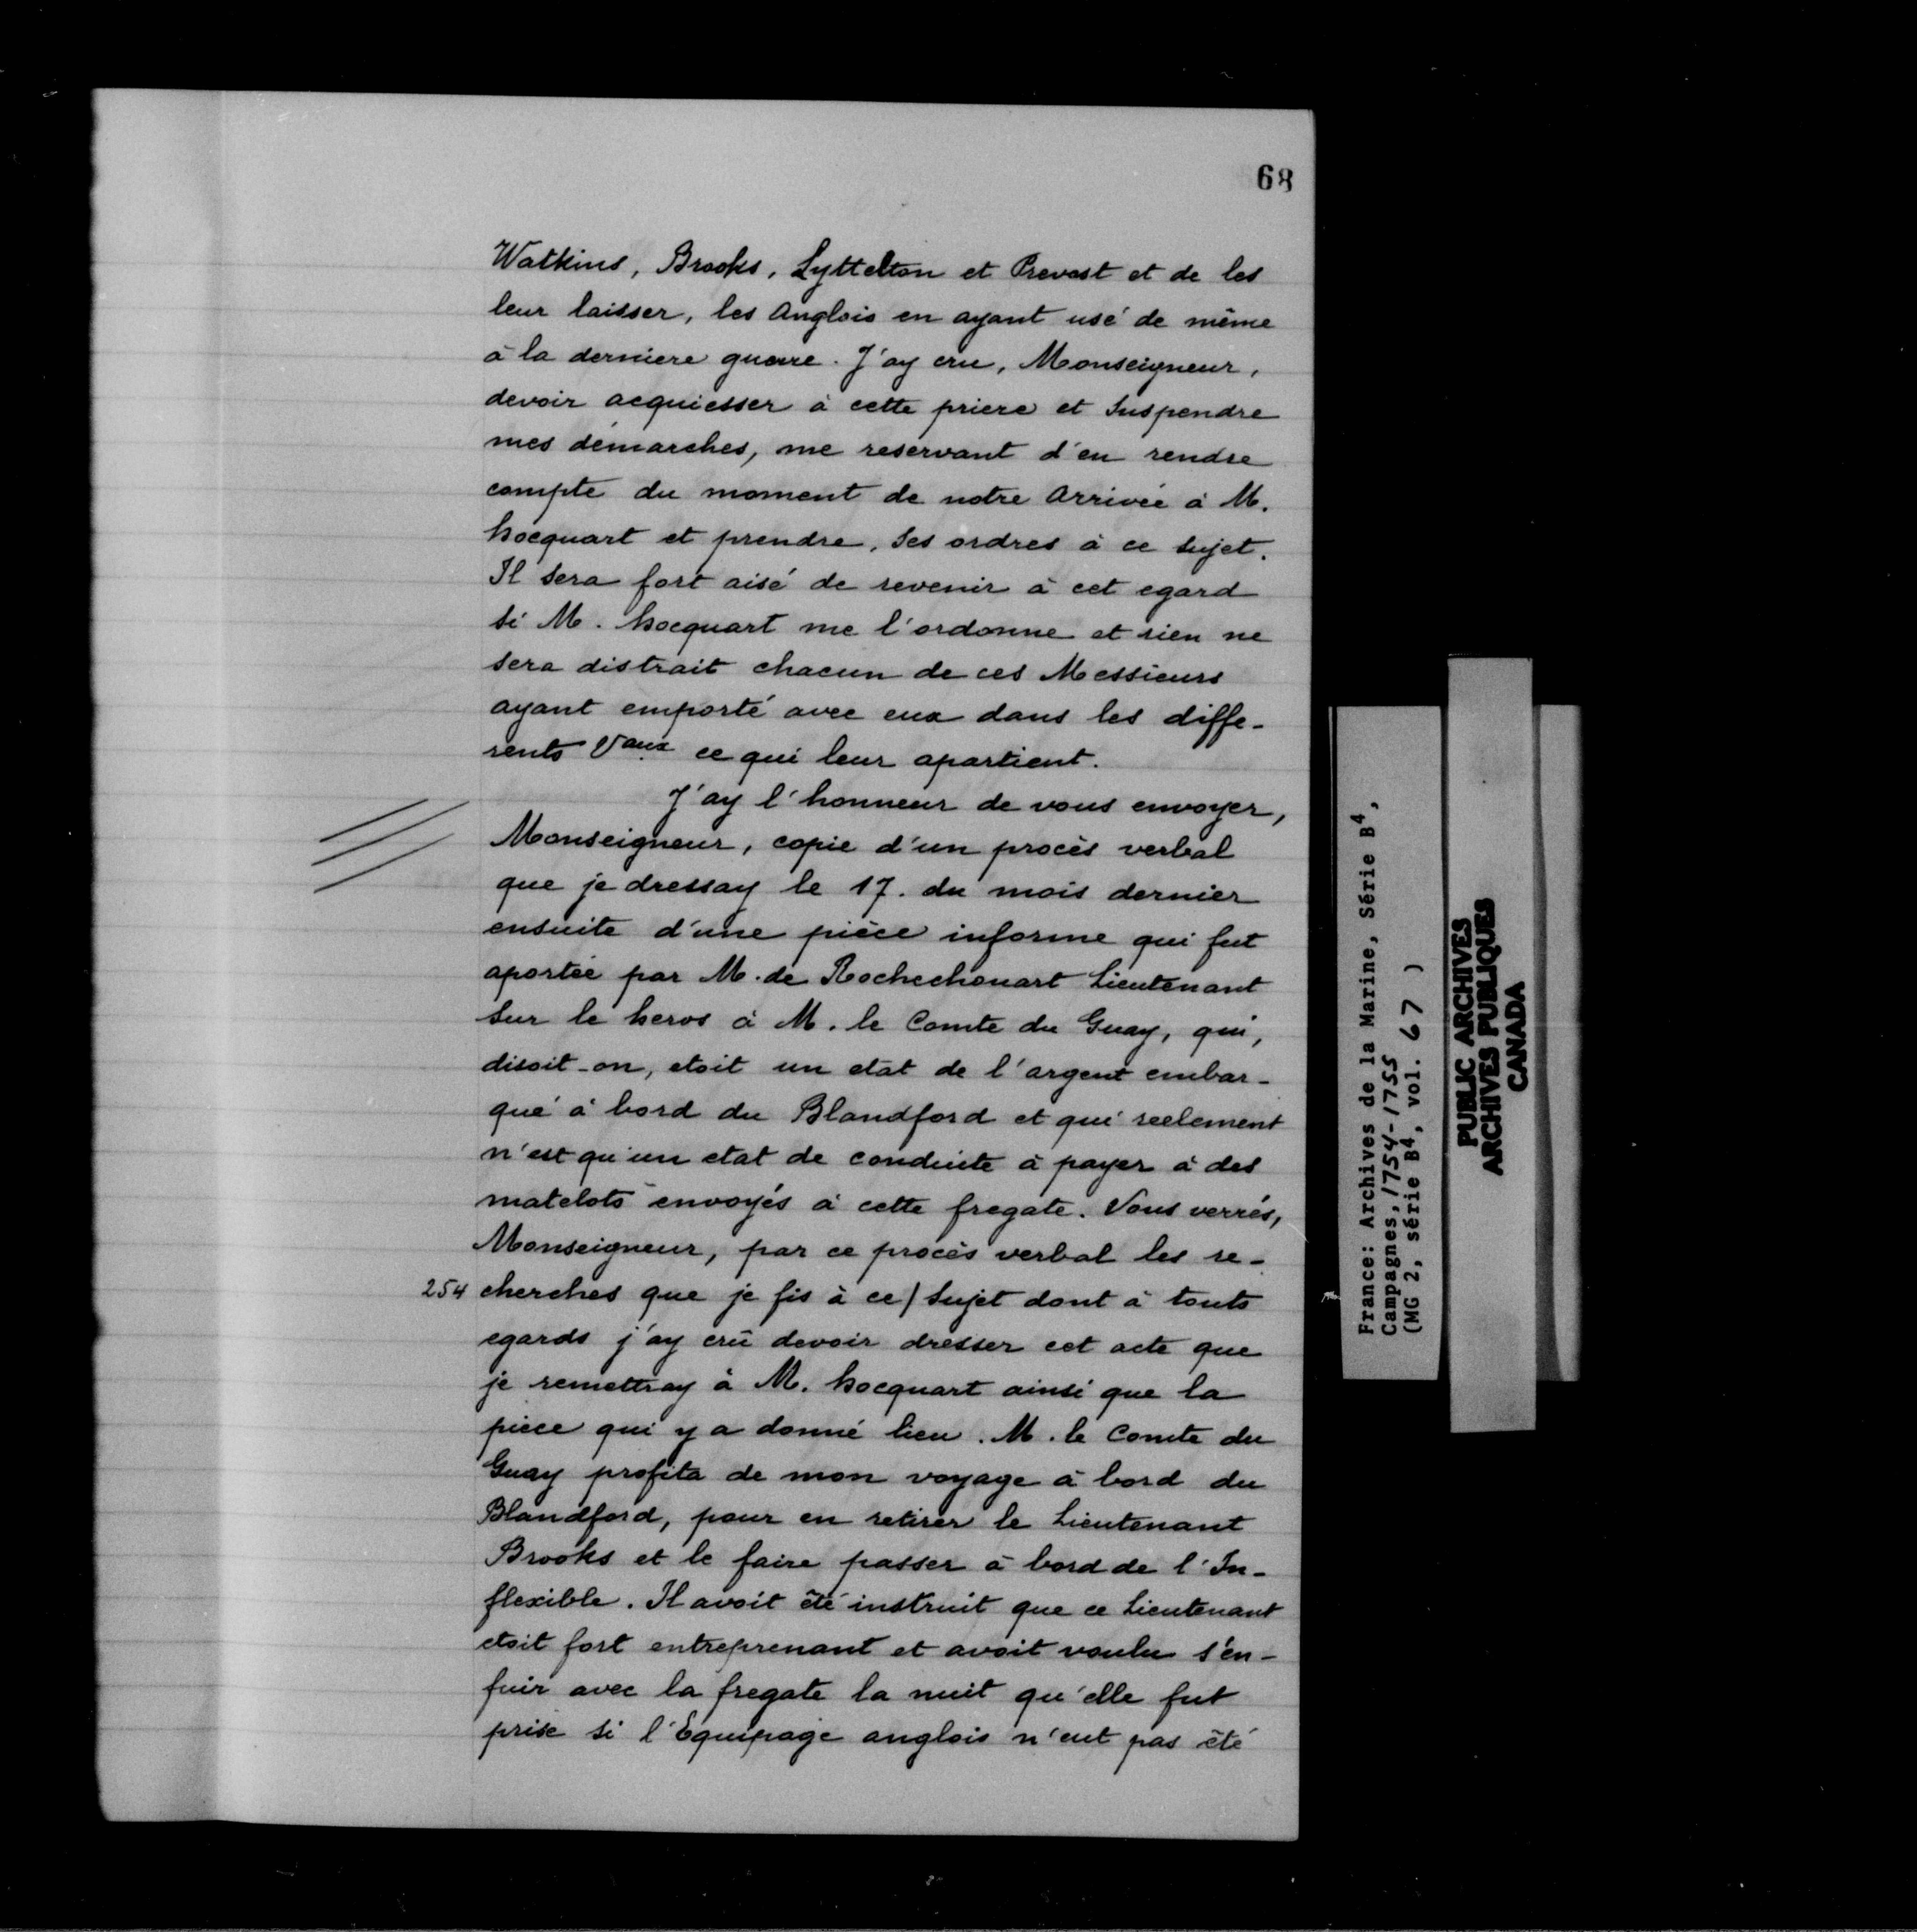 68
Watkins, Brooks, Lyttelton et Prevost et de les
leur laisser, les Anglois en ayant usé de même
à la derniere guerre. J'ay cru, Monseigneur,
devoir acquiesser à cette priere et suspendre
mes démarches, me reservant d'en rendre
compte du moment de notre arrivée à M.
hocquart et prendre, ses ordres à ce sujet.
Il sera fort aisé de revenir à cet egard
si M. hocquart me l'ordonne et rien ne
sera distrait chacun de ces Messieurs
ayant emporté avec eux dans les diffe-
rents Vaux ce qui leur apartient.
J'ay l'honneur de vous envoyer,
Monseigneur, copie d'un procès verbal
que je dressay le 17. du mois dernier
ensuite d'une pièce informe qui fut
aportée par M. de Rochechouart Lieutenant
sur le heros à M. le Comte du Guay, qui,
disoit-on, etoit un etat de l'argent embar-
qué à bord du Blandford et qui réelement
n'est qu'un etat de conduite à payer à des
matelots envoyés à cette fregate. Vous verrés,
Monseigneur, par ce procès verbal les re-
254 cherches que je fis à ce / sujet dont à touts
egards j'ay crû devoir dresser cet acte que
je remettray à M. hocquart ainsi que la
pièce qui y a donné lieu. M. le Comte du
Guay profita de mon voyage à bord du
Blandford, pour en retirer le Lieutenant
Brooks et le faire passer à bord de l'In-
flexible. Il avoit été instruit que ce Lieutenant
etoit fort entreprenant et avoit voulu s'en-
fuir avec la fregate la nuit qu'elle fut
prise si l'Equipage anglois n'eut pas été
France: Archives de la Marine, Série B4,
Campagnes, 1754-1755
(MG 2, série B4, vol. 67 )
PUBLIC ARCHIVES
ARCHIVES PUBLIQUES
CANADA